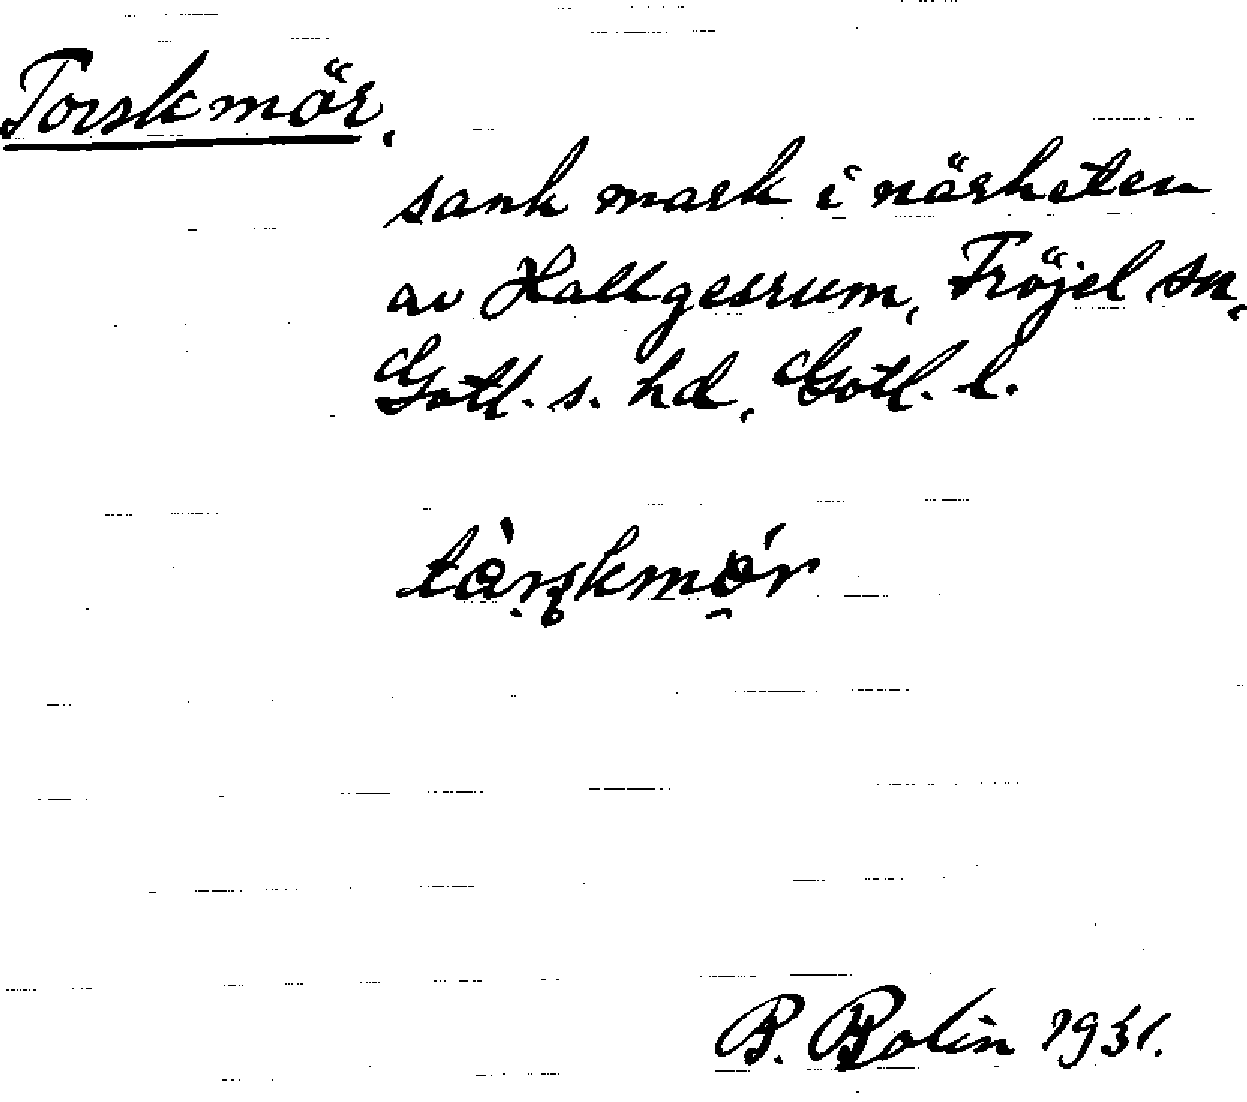 Torskmör,
sank mark i närheten
av Hallgesrum, Fröjel sn,
Gotl. s. hd, Gotl. l.
B. Bolin 1931.